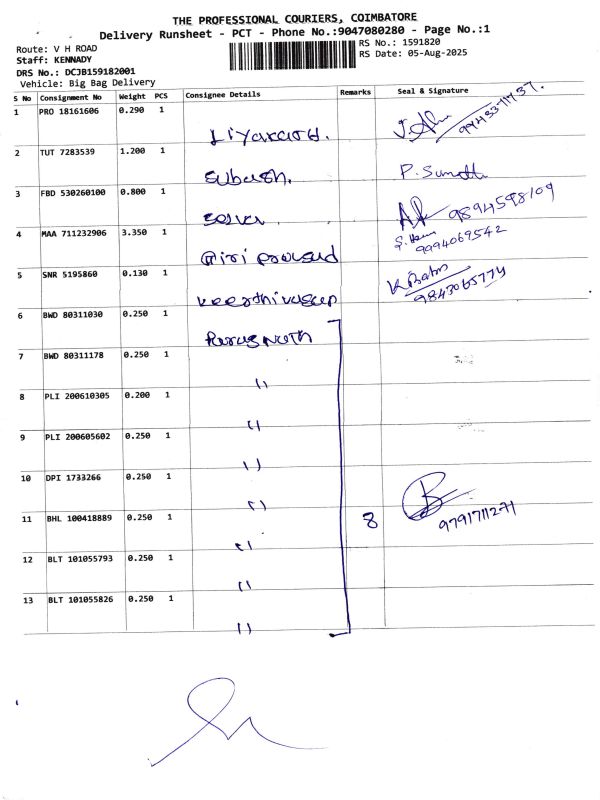 THE PROFESSIONAL COURIERS, COIMBATORE
Delivery Runsheet - PCT - Phone No.:9047080280 - Page No.:1
Route: V H ROAD
RS No.: 1591820
Staff: KENNADY
RS Date: 05-Aug-2025
DRS No.: DCJB159182001
Vehicle: Big Bag Delivery
S No Consignment No Weight PCS Consignee Details Remarks Seal & Signature
1 PRO 18161606 0.290 1
2 TUT 7283539 1.200 1
Subash. P. Sumathi
3 FBD 530260100 0.800 1
9894598109
4 MAA 711232906 3.350 1
9994069542
Giri prasad
5 SNR 5195860 0.130 1
K Babu
9843065774
Keerthivasan
6 BWD 80311030 0.250 1
Parasnath
7 BWD 80311178 0.250 1
"
8 PLI 200610305 0.200 1
"
9 PLI 200605602 0.250 1
"
10 DPI 1733266 0.250 1
"
11 BHL 100418889 0.250 1 8 9791711271
"
12 BLT 101055793 0.250 1
"
13 BLT 101055826 0.250 1
"